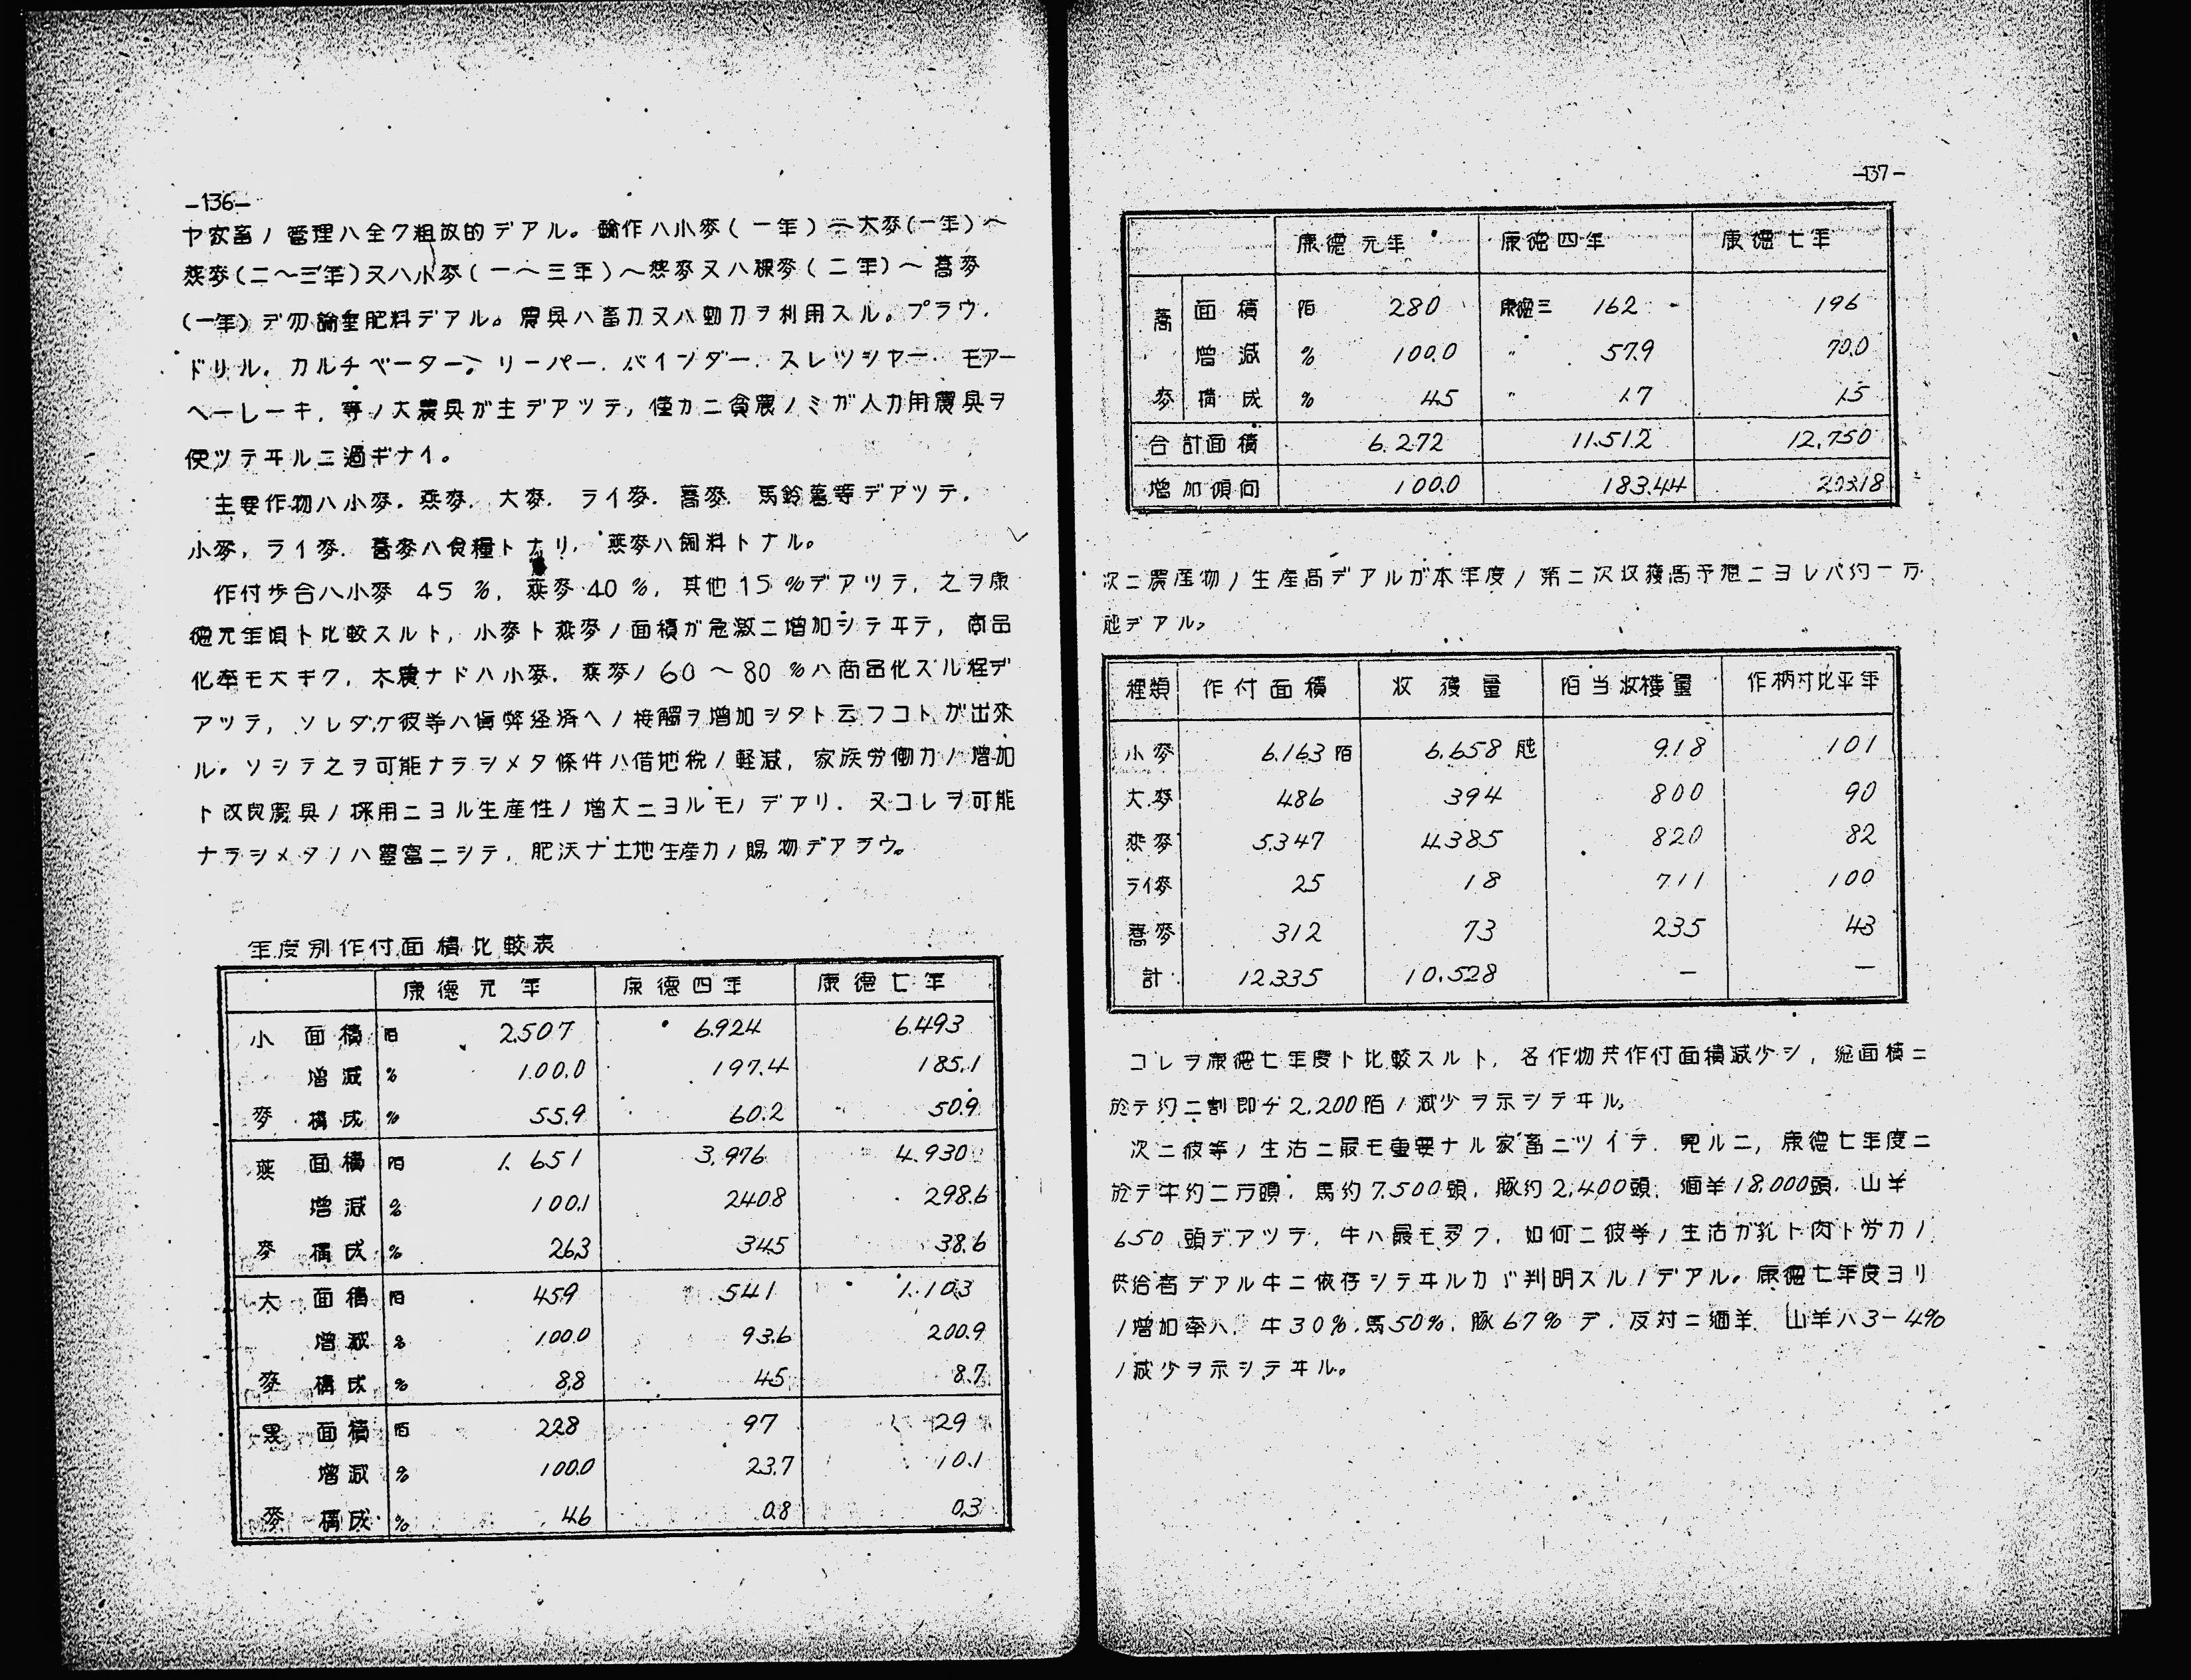 -136-
ヤ家畜ノ管理ハ全ク粗放的デアル。輪作ハ小麥(一年)〜大麥(一年)〜
燕麥(二〜三年)又ハ小麥(一〜三年)〜燕麥又ハ裸麥(二年)〜蕎麥
(一年)デ勿論無肥料デアル。農具ハ畜力又ハ動力ヲ利用スル。プラウ.
ドリル.カルチベーター.リーパー.バインダー.スレツシヤー.モアー
ヘーレーキ,等ノ大農具ガ主デアツテ,僅カニ貧農ノミガ人力用農具ヲ
使ツテヰルニ過ギナイ。
主要作物ハ小麥.燕麥.大麥.ライ麥.蕎麥.馬鈴薯等デアツテ.
小麥,ライ麥.蕎麥ハ食糧トナリ.燕麥ハ飼料トナル。
作付歩合ハ小麥 45 %,燕麥 40 %,其他 15 %デアツテ,之ヲ康
徳元年頃ト比較スルト,小麥ト燕麥ノ面積ガ急激ニ増加シテヰテ,商品
化率モ大キク,大農ナドハ小麥.燕麥ノ 60 〜 80 %ハ商品化スル程デ
アツテ,ソレダケ彼等ハ貨幣経済ヘノ接觸ヲ増加シタト云フコトガ出來
ル。ソシテ之ヲ可能ナラシメタ條件ハ借地税ノ軽減,家族労働力ノ増加
ト改良農具ノ採用ニヨル生産性ノ増大ニヨルモノデアリ.又コレヲ可能
ナラシメタノハ豊富ニシテ,肥沃ナ土地生産力ノ賜物デアラウ。
年度別作付面積比較表
康徳元年 康徳四年 康徳七年
小 面積 陌 2.507 6.924 6.493
増減 % 100.0 197.4 185.1
麥 構成 % 55.9 60.2 50.9
燕 面積 陌 1.651 3.976 4.930
増減 % 100.1 240.8 298.6
麥 構成 % 26.3 34.5 38.6
大 面積 陌 459 541 1.103
増減 % 100.0 93.6 200.9
麥 構成 % 8.8 4.5 8.7
黒 面積 陌 228 97 29
増減 % 100.0 23.7 10.1
麥 構成 % 4.6 0.8 0.3
-137-
康徳元年 康徳四年 康徳七年
蕎 面積 陌 280 康徳三 162 196
増減 % 100.0 〃 57.9 70.0
麥 構成 % 4.5 〃 1.7 1.5
合計面積 6.272 11.512 12.750
増加傾向 100.0 183.44 203.18
次ニ農産物ノ生産高デアルガ本年度ノ第二次収獲高予想ニヨレバ約一万
瓲デアル。
種類 作付面積 收獲量 陌当收穫量 作柄対比平年
小麥 6.163陌 6.658瓲 918 101
大麥 486 394 800 90
燕麥 5.347 4.385 820 82
ライ麥 25 18 711 100
蕎麥 312 73 235 43
計 12.335 10.528 — —
コレヲ康徳七年度ト比較スルト,各作物共作付面積減少シ,総面積ニ
於テ約二割即チ 2.200陌ノ減少ヲ示シテヰル。
次ニ彼等ノ生活ニ最モ重要ナル家畜ニツイテ.見ルニ,康徳七年度ニ
於テ牛約二万頭.馬約 7.500頭.豚約 2.400頭.緬羊 18.000頭.山羊
650 頭デアツテ,牛ハ最モ多ク,如何ニ彼等ノ生活ガ乳ト肉ト労力ノ
供給者デアル牛ニ依存シテヰルカヾ判明スルノデアル。康徳七年度ヨリ
ノ増加率ハ.牛30%.馬50%.豚67%デ.反対ニ緬羊.山羊ハ3-4%
ノ減少ヲ示シテヰル。